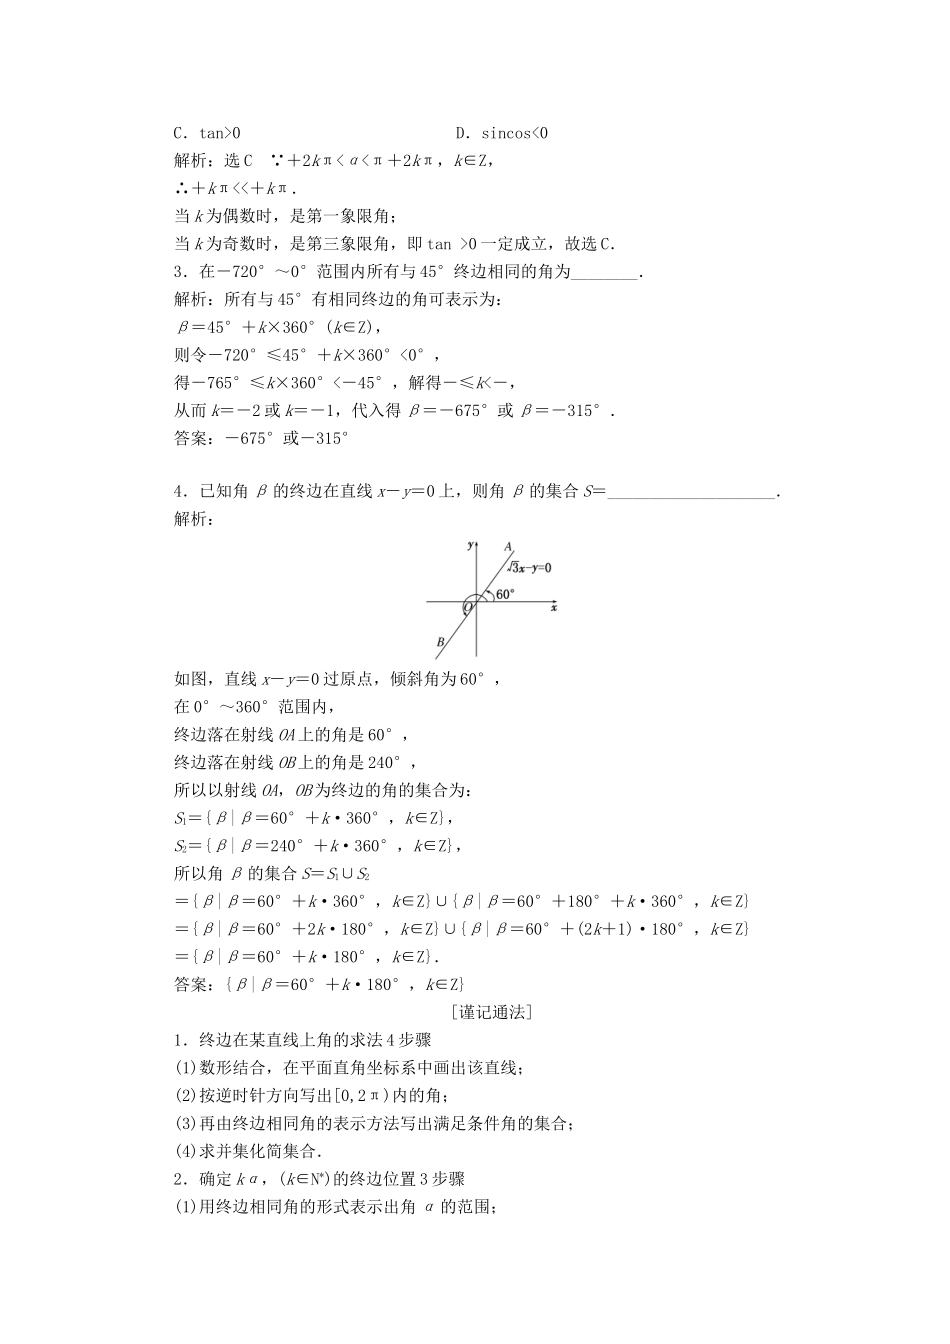 C．tan>0 D．sincos<0
解析：选 C ∵＋2kπ<α<π＋2kπ，k∈Z，
∴＋kπ<<＋kπ.
当 k 为偶数时，是第一象限角；
当 k 为奇数时，是第三象限角，即 tan >0 一定成立，故选 C.
3．在－720°～0°范围内所有与 45°终边相同的角为________．
解析：所有与 45°有相同终边的角可表示为：
β＝45°＋k×360°(k∈Z)，
则令－720°≤45°＋k×360°<0°，
得－765°≤k×360°<－45°，解得－≤k<－，
从而 k＝－2 或 k＝－1，代入得 β＝－675°或 β＝－315°.
答案：－675°或－315°
4．已知角 β 的终边在直线 x－y＝0 上，则角 β 的集合 S＝____________________．
解析：
y A
√3x−y=0
60°
O x
B
如图，直线 x－y＝0 过原点，倾斜角为 60°，
在 0°～360°范围内，
终边落在射线 OA 上的角是 60°，
终边落在射线 OB 上的角是 240°，
所以以射线 OA，OB 为终边的角的集合为：
S₁＝{β|β＝60°＋k·360°，k∈Z}，
S₂＝{β|β＝240°＋k·360°，k∈Z}，
所以角 β 的集合 S＝S₁∪S₂
＝{β|β＝60°＋k·360°，k∈Z}∪{β|β＝60°＋180°＋k·360°，k∈Z}
＝{β|β＝60°＋2k·180°，k∈Z}∪{β|β＝60°＋(2k＋1)·180°，k∈Z}
＝{β|β＝60°＋k·180°，k∈Z}.
答案：{β|β＝60°＋k·180°，k∈Z}
[谨记通法]
1．终边在某直线上角的求法 4 步骤
(1)数形结合，在平面直角坐标系中画出该直线；
(2)按逆时针方向写出[0,2π)内的角；
(3)再由终边相同角的表示方法写出满足条件角的集合；
(4)求并集化简集合．
2．确定 kα，(k∈N*)的终边位置 3 步骤
(1)用终边相同角的形式表示出角 α 的范围；